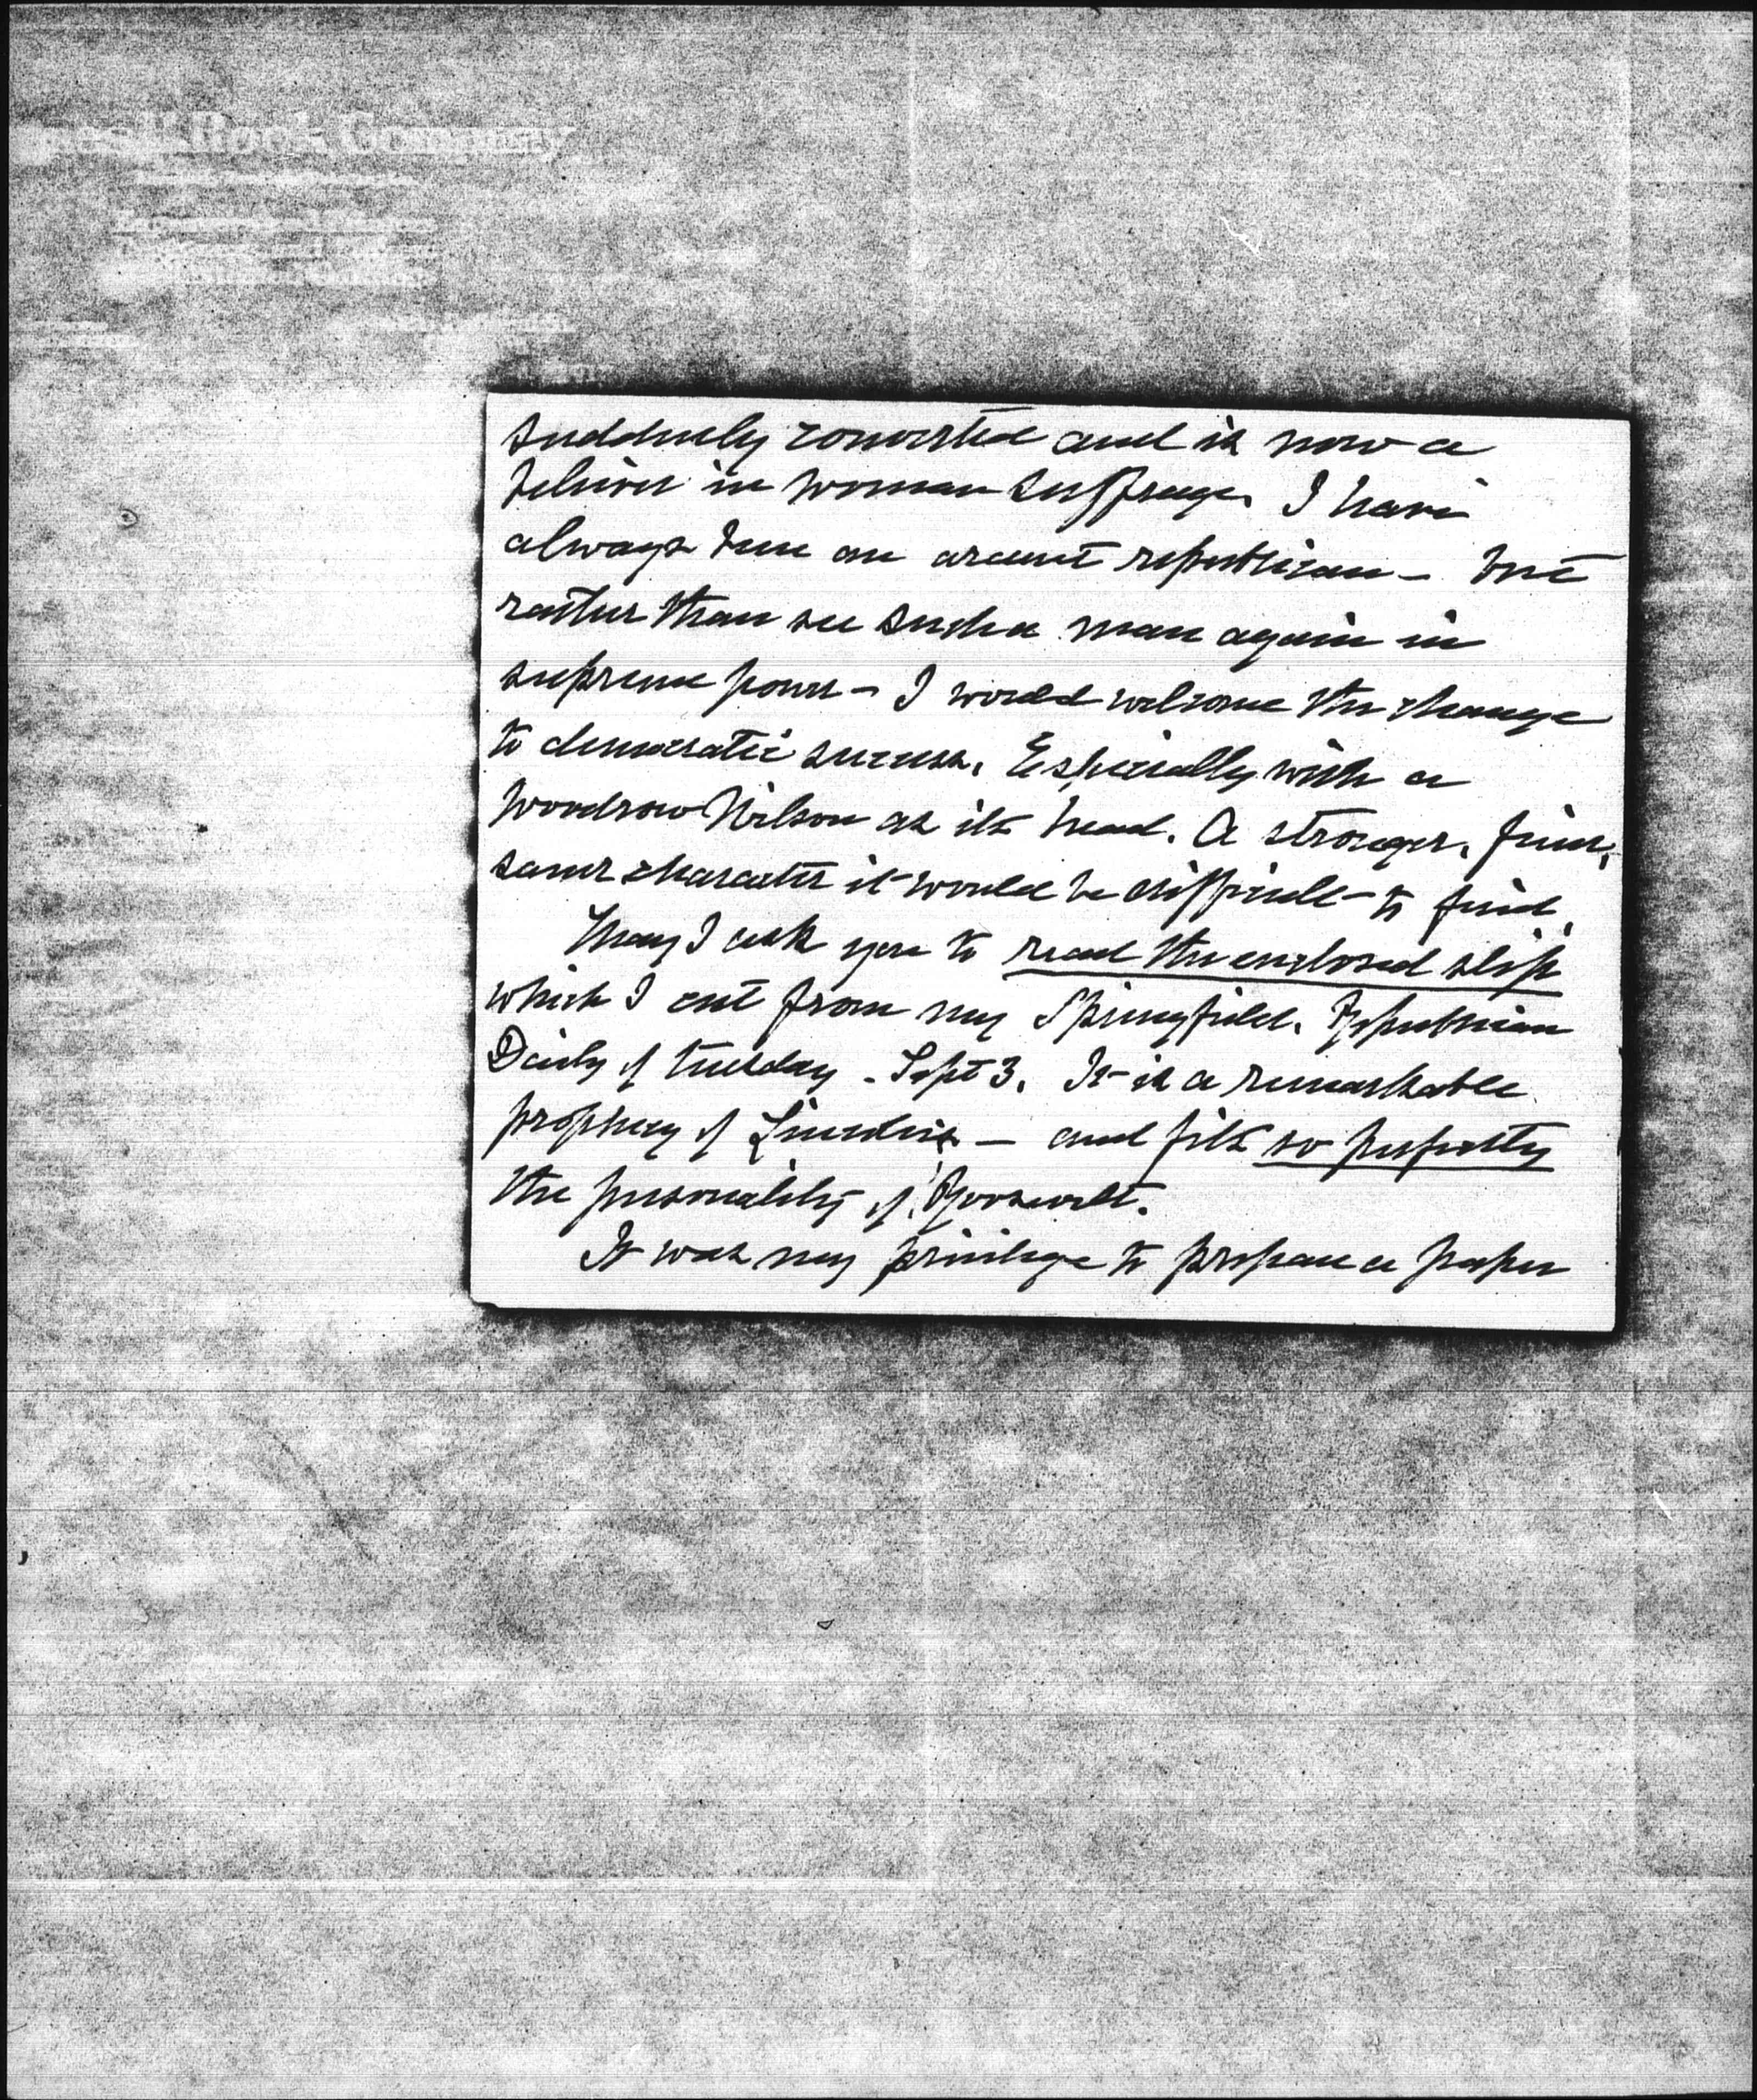 Book Company
suddenly converted and is now a
believer in woman suffrage. I have
always been an ardent republican – but
rather than see such a man again in
supreme power – I would welcome the change
to democratic success. Especially with a
Woodrow Wilson as its head. A stronger, finer,
saner character it would be difficult to find.
May I ask you to read the enclosed slip
which I cut from my Springfield. Republican
Daily of Tuesday - Sept 3. It is a remarkable
prophecy of Lincoln's – and fits so perfectly
the personality of Roosevelt.
It was my privilege to prepare a paper